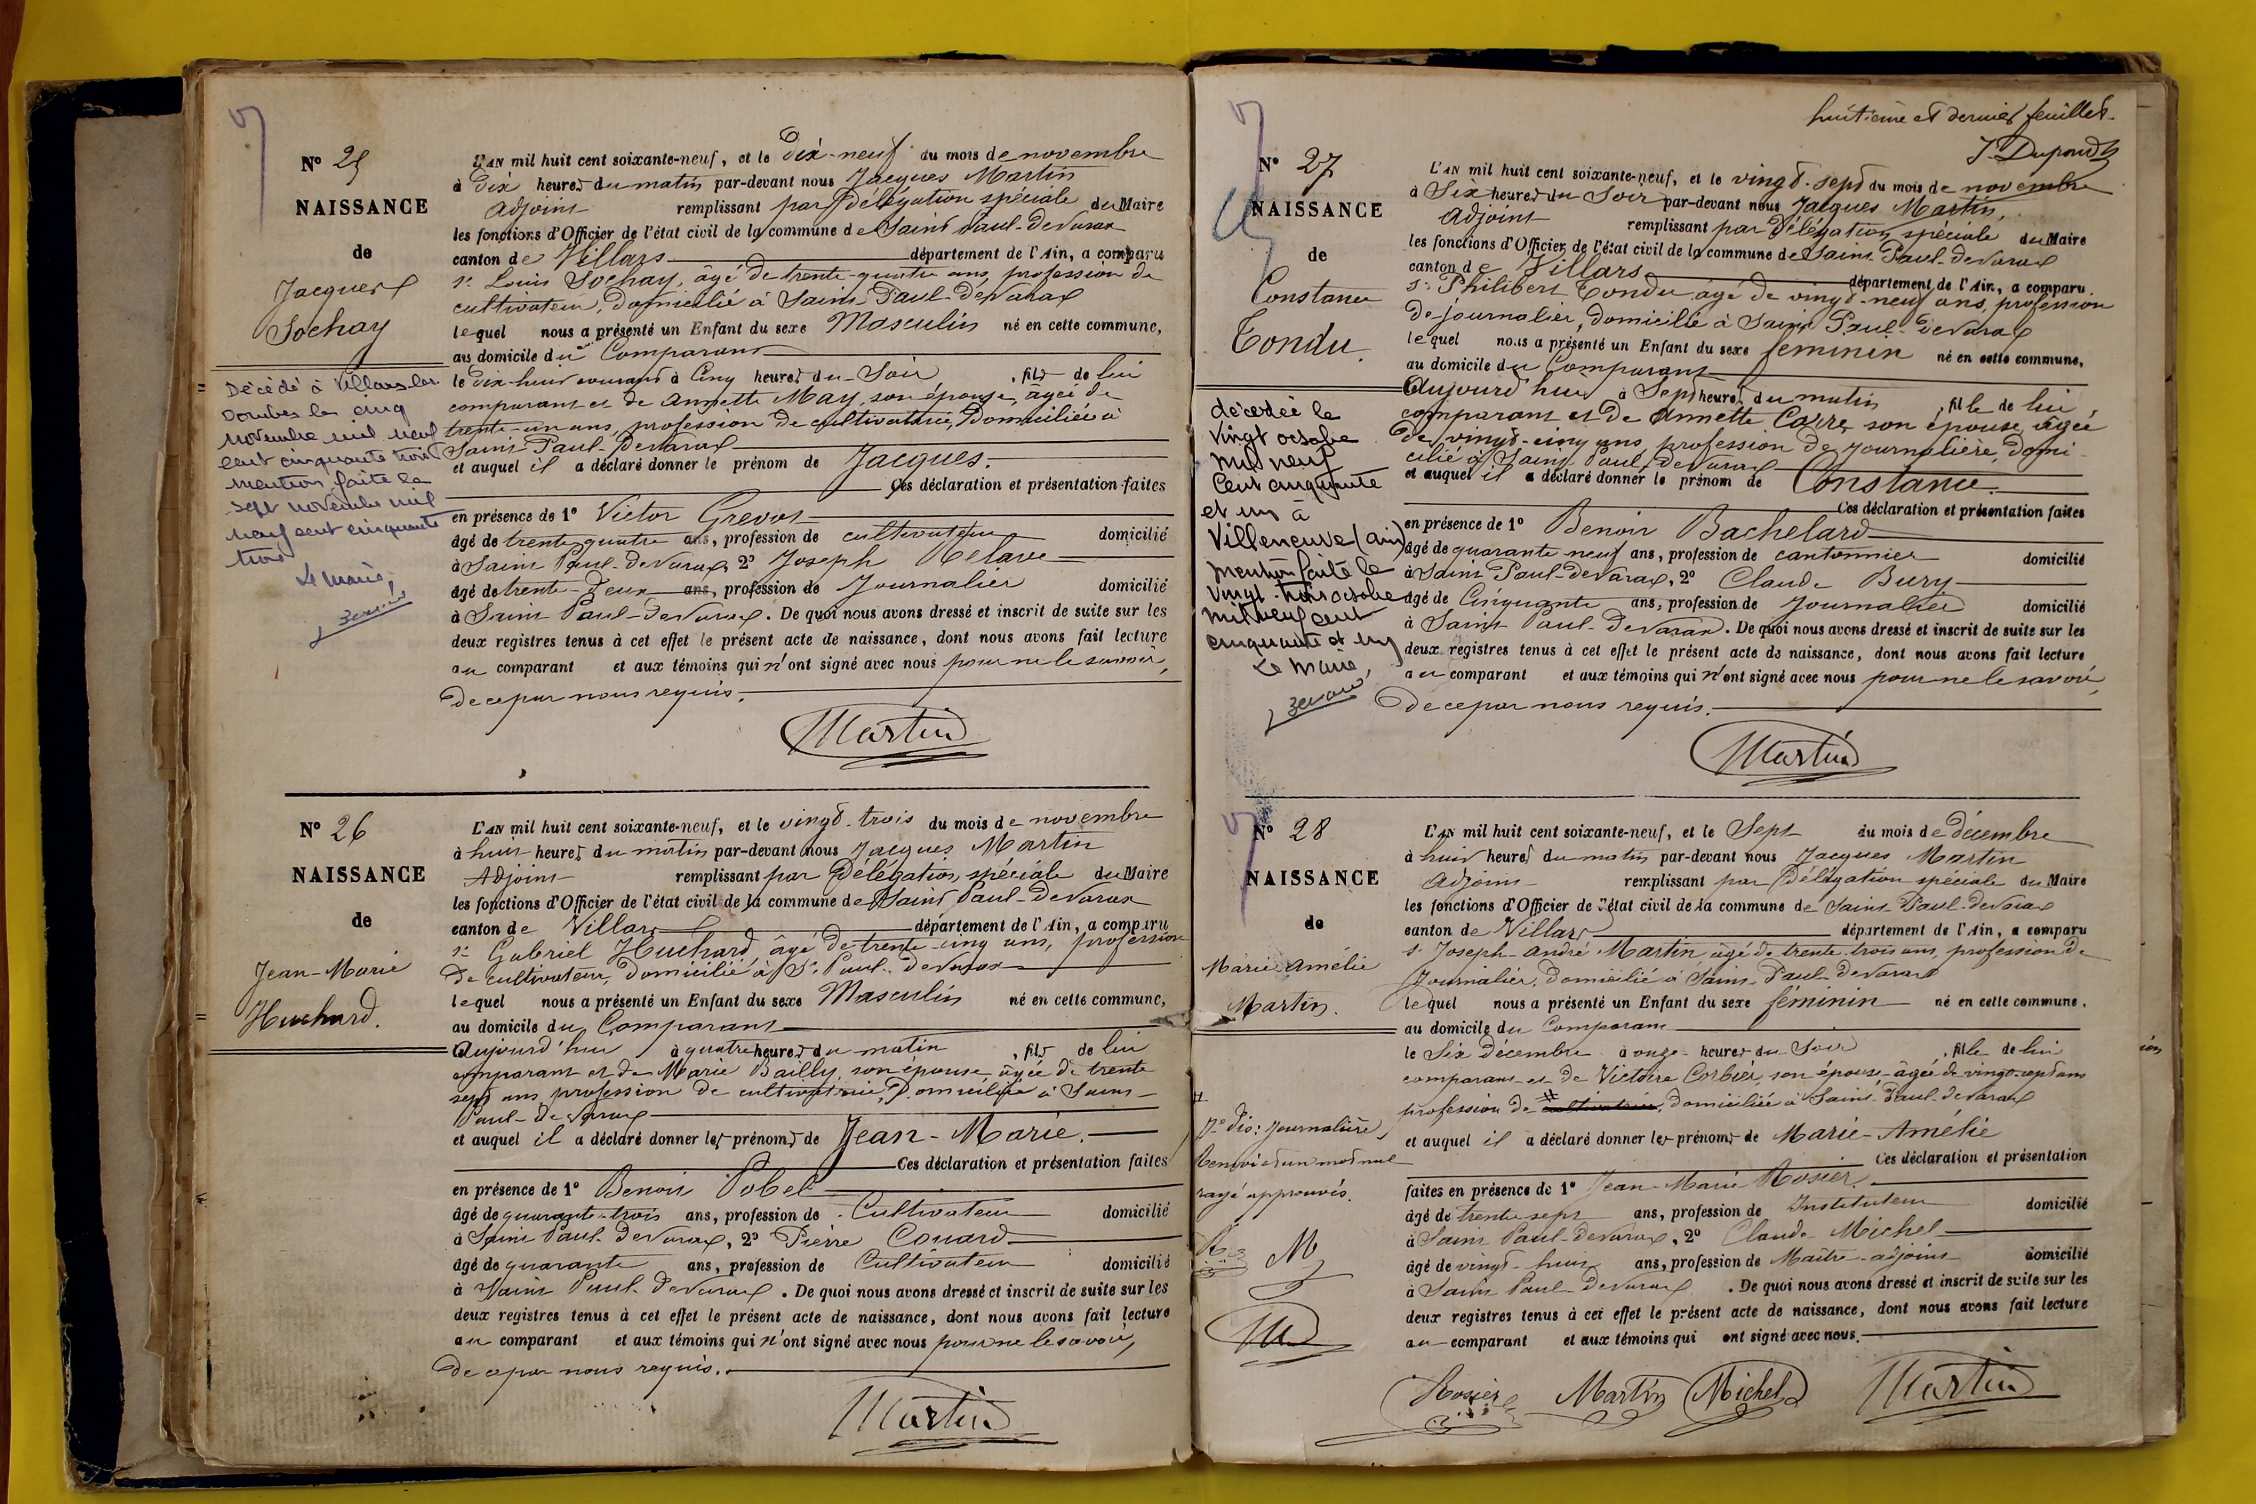 N° 25
NAISSANCE
de
Jacques
Sochay
Décédé à Villars les
Dombes le cinq
novembre mil neuf
cent cinquante trois
mention faite le
sept novembre mil
neuf cent cinquante
trois
Le Maire,
L'AN mil huit cent soixante-neuf, et le Dix-neuf du mois de novembre
à Dix heures du matin par-devant nous Jacques Martin
Adjoint remplissant par Délégation spéciale du Maire
les fonctions d'Officier de l'état civil de la commune de Saint Paul-De Varax
canton de Villars département de l'Ain, a comparu
sr Louis Sochay, âgé de trente-quatre ans, profession de
cultivateur, Domicilié à Saint Paul-De Varax
lequel nous a présenté un Enfant du sexe Masculin né en cette commune,
au domicile du Comparant
le Dix-huit courant à Cinq heures du Soir, fils de lui
comparant et de Annette May, son épouse, agée de
trente-un ans, profession de cultivatrice, Domiciliée à
Saint Paul-De Varax
et auquel il a déclaré donner le prénom de Jacques.
Ces déclaration et présentation faites
en présence de 1° Victor Grevat
âgé de trente quatre ans, profession de cultivateur domicilié
à Saint Paul-De Varax, 2° Joseph Relave
âgé de trente-Deux ans, profession de Journalier domicilié
à Saint Paul-De Varax. De quoi nous avons dressé et inscrit de suite sur les
deux registres tenus à cet effet le présent acte de naissance, dont nous avons fait lecture
au comparant et aux témoins qui n'ont signé avec nous pour ne le savoir,
De ce par nous requis.
Martin
N° 26
NAISSANCE
de
Jean-Marie
Huchard.
L'AN mil huit cent soixante-neuf, et le vingt-trois du mois de novembre
à huit heures du matin par-devant nous Jacques Martin
Adjoint remplissant par Délégation spéciale du Maire
les fonctions d'Officier de l'état civil de la commune de Saint Paul-De Varax
canton de Villars département de l'Ain, a comparu
sr Gabriel Huchard âgé De trente-cinq ans, profession
De cultivateur, Domicilié à St Paul-de Varax
lequel nous a présenté un Enfant du sexe Masculin né en cette commune,
au domicile du Comparant
Aujourd'hui à quatre heures du matin, fils de lui
comparant et de Marie Bailly, son épouse, âgée de trente
sept ans, profession de cultivatrice, Domiciliée à Saint
Paul-De Varax
et auquel il a déclaré donner les prénoms de Jean-Marie.
Ces déclaration et présentation faites
en présence de 1° Benoit Pobel
âgé de quarante-trois ans, profession de Cultivateur domicilié
à Saint Paul-De Varax, 2° Pierre Couard
âgé de quarante ans, profession de Cultivateur domicilié
à Saint Paul-De Varax. De quoi nous avons dressé et inscrit de suite sur les
deux registres tenus à cet effet le présent acte de naissance, dont nous avons fait lecture
au comparant et aux témoins qui n'ont signé avec nous pour ne le savoir,
De ce par nous requis.
Martin
huitième et dernier feuillet.
J. Dupond
N° 27
NAISSANCE
de
Constance
Tondu.
décédée le
vingt octobre
mil neuf
cent cinquante
et un à
Villeneuve (ain)
mention faite le
vingt-trois octobre
mil neuf cent
cinquante et un
Le Maire,
L'AN mil huit cent soixante-neuf, et le vingt-sept du mois de novembre
à Six heures du Soir par-devant nous Jacques Martin,
Adjoint remplissant par Délégation spéciale du Maire
les fonctions d'Officier de l'état civil de la commune de Saint Paul-de Varax
canton de Villars département de l'Ain, a comparu
sr Philibert Tondu âgé de vingt-neuf ans, profession
De journalier, Domicilié à Saint Paul-De Varax
lequel nous a présenté un Enfant du sexe féminin né en cette commune,
au domicile du Comparant
Aujourd'hui à Sept heures du matin, fille de lui
comparant et De Annette Carre, son épouse, agée
De vingt-cinq ans, profession De Journalière, Domi-
cilié à Saint Paul-De Varax
et auquel il a déclaré donner le prénom de Constance.
Ces déclaration et présentation faites
en présence de 1° Benoit Bachelard
âgé de quarante neuf ans, profession de cantonnier domicilié
à Saint Paul-De Varax, 2° Claude Bury
âgé de Cinquante ans, profession de Journalier domicilié
à Saint Paul-De Varax. De quoi nous avons dressé et inscrit de suite sur les
deux registres tenus à cet effet le présent acte de naissance, dont nous avons fait lecture
au comparant et aux témoins qui n'ont signé avec nous pour ne le savoir,
De ce par nous requis.
Martin
N° 28
NAISSANCE
de
Marie Amélie
Martin.
pon Dis: Journalière,
Renvoi et un mot nul
rayé approuvés.
L'AN mil huit cent soixante-neuf, et le Sept du mois de Décembre
à huit heures du matin par-devant nous Jacques Martin
Adjoint remplissant par Délégation spéciale du Maire
les fonctions d'Officier de l'état civil de la commune de Saint Paul-de Varax
canton de Villars département de l'Ain, a comparu
sr Joseph-André Martin, âgé de trente-trois ans, profession De
Journalier, Domicilié à Saint-Paul-De Varax
lequel nous a présenté un Enfant du sexe féminin né en cette commune,
au domicile du Comparant
le Six décembre à onze heures du Soir, fille de lui
comparant et de Victoire Corbier, son épouse âgée de vingt-sept ans
profession De # cultivatrice, Domiciliée à Saint-Paul-de Varax
et auquel il a déclaré donner les prénoms de Marie-Amélie
Ces déclaration et présentation
faites en présence de 1° Jean-Marie Rosier
âgé de trente-sept ans, profession de Instituteur domicilié
à Saint Paul-De Varax, 2° Claude Michel
âgé de vingt-huit ans, profession de Maître-adjoint domicilié
à Saint Paul-De Varax. De quoi nous avons dressé et inscrit de suite sur les
deux registres tenus à cet effet le présent acte de naissance, dont nous avons fait lecture
au comparant et aux témoins qui ont signé avec nous.
Rosier Martin Michel Martin